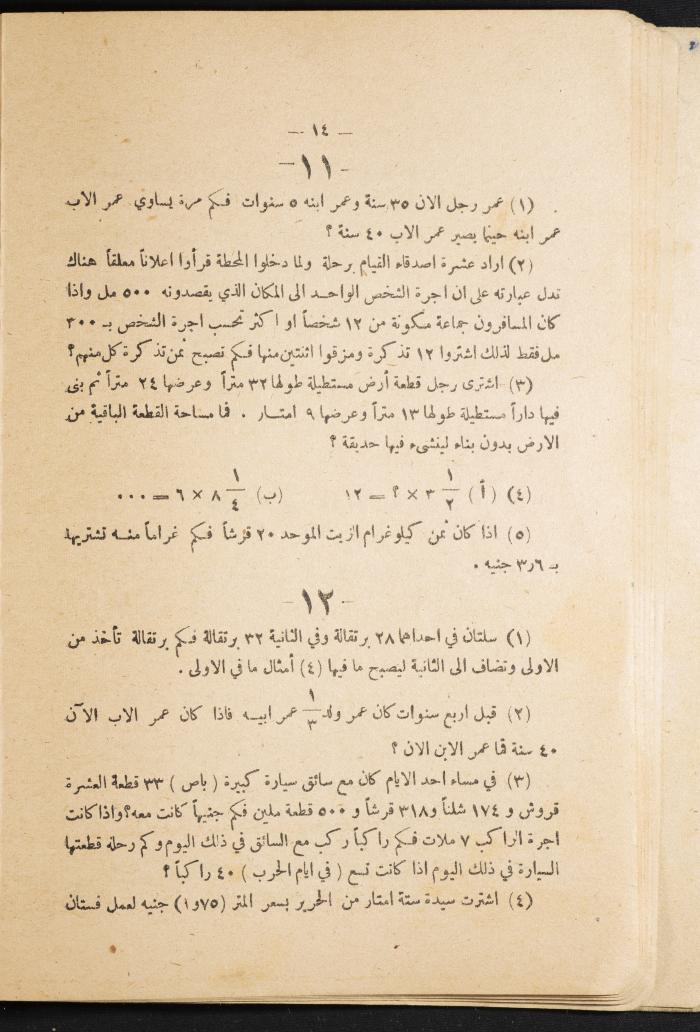 — ١٤ —
-١١-
(١) عمر رجل الان ٣٥ سنة وعمر ابنه ٥ سنوات فكم مرة يساوي عمر الاب
عمر ابنه حينما يصير عمر الاب ٤٠ سنة ؟
(٢) اراد عشرة اصدقاء القيام برحلة ولما دخلوا المحطة قرأوا اعلاناً معلقاً هناك
تدل عبارته على ان اجرة الشخص الواحد الى المكان الذي يقصدونه ٥٠٠ مل واذا
كان المسافرون جماعة مكونة من ١٢ شخصاً او اكثر تحسب اجرة الشخص بـ ٣٠٠
مل فقط لذلك اشتروا ١٢ تذكرة ومزقوا اثنتين منها فكم تصبح ثمن تذكرة كل منهم؟
(٣) اشترى رجل قطعة أرض مستطيلة طولها ٣٢ متراً وعرضها ٢٤ متراً ثم بنى
فيها داراً مستطيلة طولها ١٣ متراً وعرضها ٩ امتار . فما مساحة القطعة الباقية من
الارض بدون بناء لينشىء فيها حديقة ؟
(٤) (أ) ٣ ١/٢ × ؟ = ١٢ (ب) ٨ ١/٤ × ٦ = ٠٠٠
(٥) اذا كان ثمن كيلوغرام الزيت الموحد ٢٠ قرشاً فكم غراماً منه تشتريها
بـ ٣٫٦ جنيه .
-١٢-
(١) سلتان في احداهما ٢٨ برتقالة وفي الثانية ٣٢ برتقالة فكم برتقالة تأخذ من
الاولى وتضاف الى الثانية ليصبح ما فيها (٤) أمثال ما في الاولى .
(٢) قبل اربع سنوات كان عمر ولد ١/٣ عمر ابيه فاذا كان عمر الاب الآن
٤٠ سنة فما عمر الابن الان ؟
(٣) في مساء احد الايام كان مع سائق سيارة كبيرة ( باص ) ٣٣ قطعة العشرة
قروش و ١٧٤ شلناً و٣١٨ قرشاً و ٥٠٠ قطعة ملين فكم جنيهاً كانت معه؟ واذا كانت
اجرة الراكب ٧ ملات فكم راكباً ركب مع السائق في ذلك اليوم وكم رحلة قطعتها
السيارة في ذلك اليوم اذا كانت تسع ( في ايام الحرب ) ٤٠ راكباً ؟
(٤) اشترت سيدة ستة امتار من الحرير بسعر المتر (٧٥و١) جنيه لعمل فستان